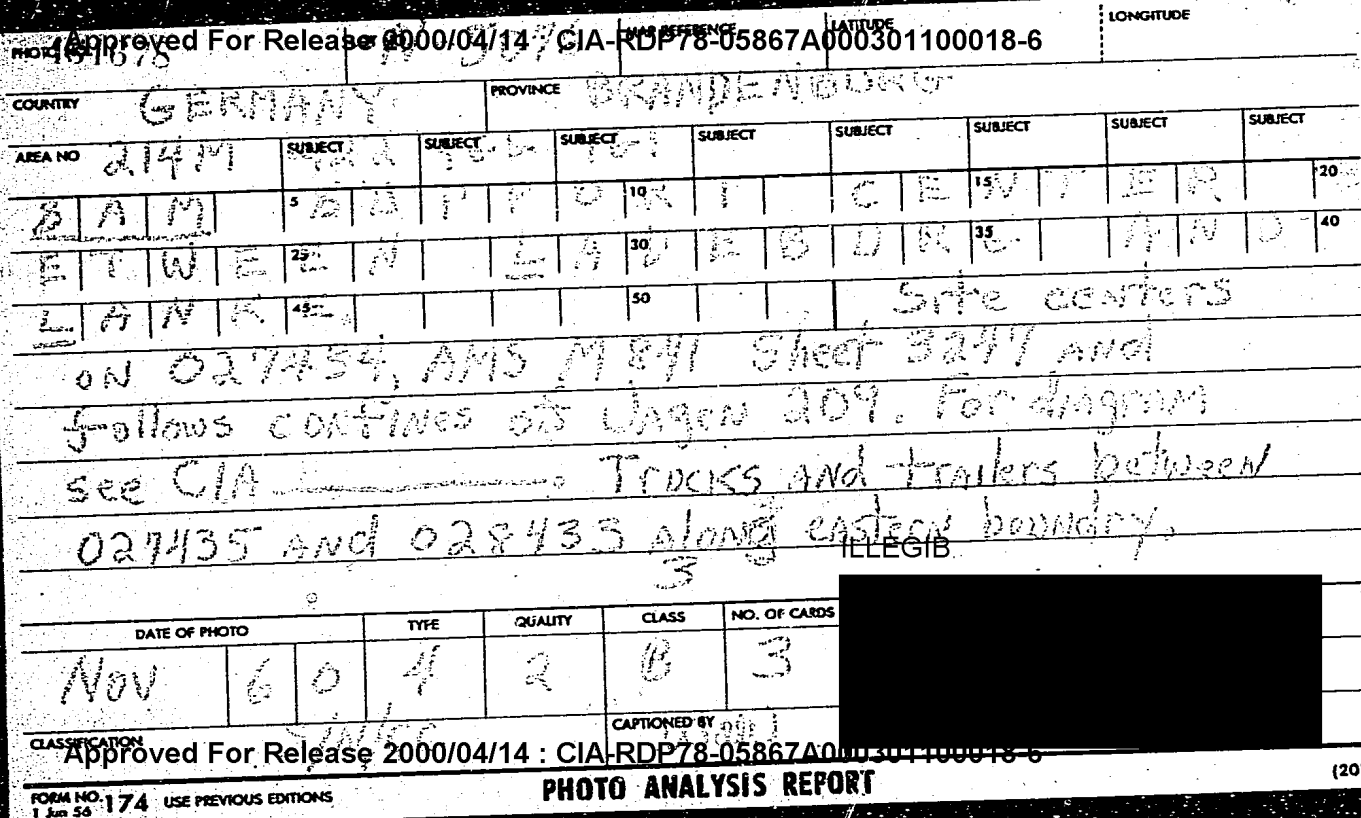 MAP REFERENCE LATITUDE LONGITUDE
Approved For Release 2000/04/14 : CIA-RDP78-05867A000301100018-6
COUNTRY GERMANY PROVINCE BRANDENBURG
AREA NO 214M SUBJECT SUBJECT SUBJECT SUBJECT SUBJECT SUBJECT SUBJECT SUBJECT
SAM 5 SUPPO 10 RT CE 15 NTER 20
ETWE 25 EN LA 30 DEBUR 35 G AND 40
LANK 45 E 50 Site centers
ON 027434, AMS M 841 Sheet 3247 and
follows confines of Jagen 209. For diagram
see CIA . Trucks and trailers between
027435 and 028433 along eastern boundry.
3 ILLEGIB
DATE OF PHOTO TYPE QUALITY CLASS NO. OF CARDS
Nov 6 0 4 2 B 3
CLASSIFICATION CAPTIONED BY
Approved For Release 2000/04/14 : CIA-RDP78-05867A000301100018-6
FORM NO. 174 USE PREVIOUS EDITIONS PHOTO ANALYSIS REPORT (20
1 Jun 56